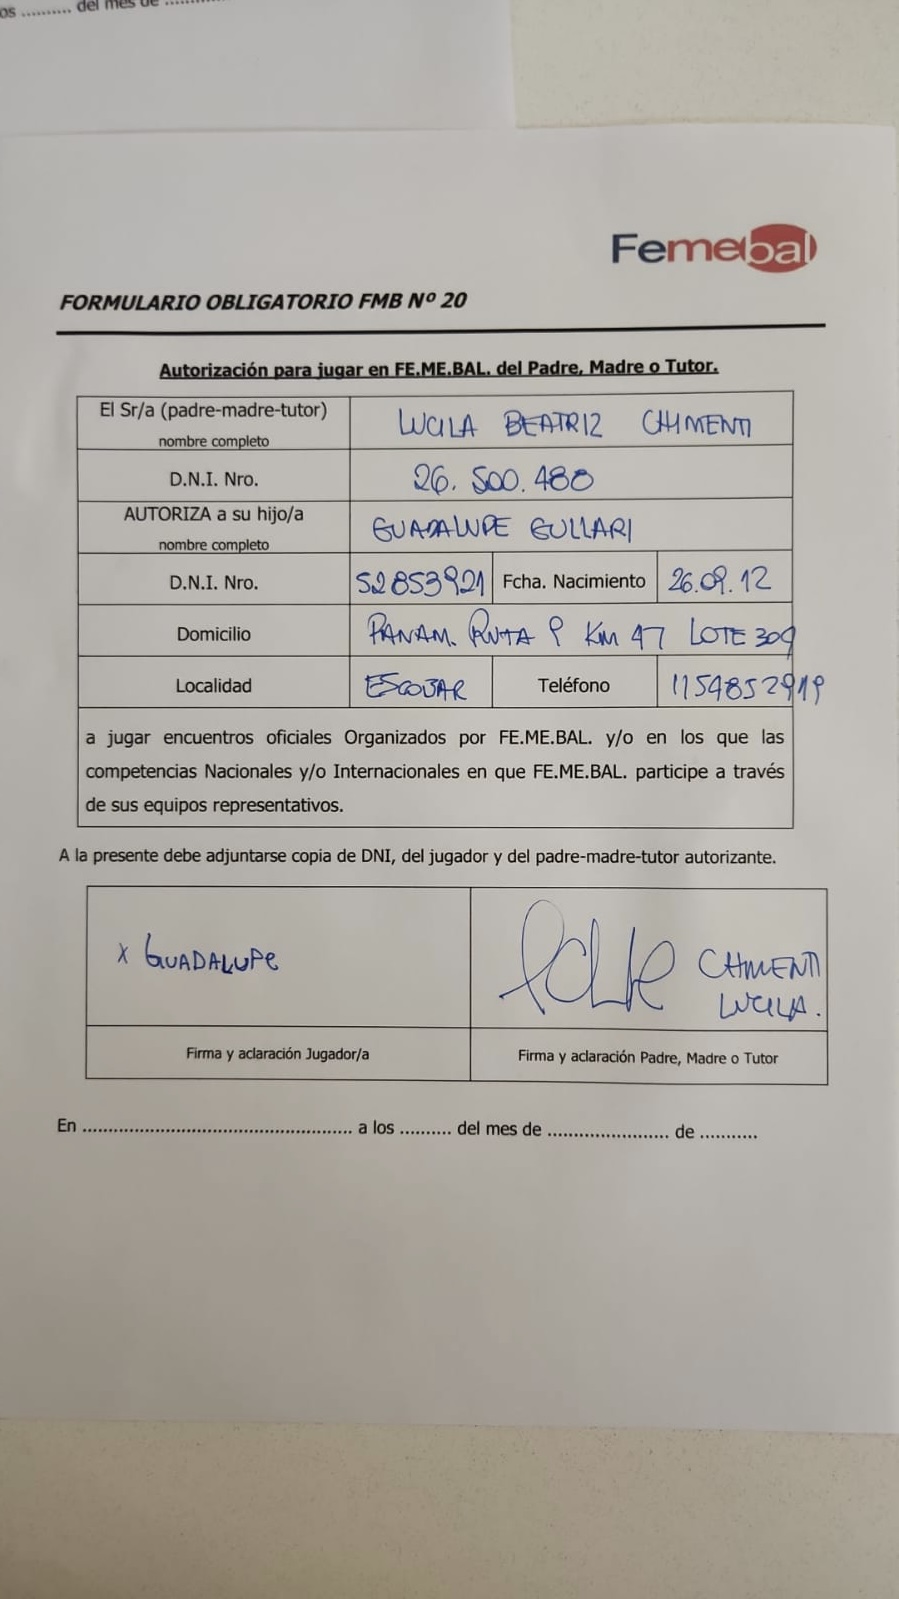 os .......... del mes de ..........
Femebal
FORMULARIO OBLIGATORIO FMB Nº 20
Autorización para jugar en FE.ME.BAL. del Padre, Madre o Tutor.
El Sr/a (padre-madre-tutor) nombre completo LUCILA BEATRIZ CHIMENTI
D.N.I. Nro. 26.500.488
AUTORIZA a su hijo/a nombre completo GUADALUPE GULLARI
D.N.I. Nro. 52853921 Fcha. Nacimiento 26.09.12
Domicilio PANAM. RUTA 9 KM 47 LOTE 309
Localidad ESCOBAR Teléfono 1154852919
a jugar encuentros oficiales Organizados por FE.ME.BAL. y/o en los que las
competencias Nacionales y/o Internacionales en que FE.ME.BAL. participe a través
de sus equipos representativos.
A la presente debe adjuntarse copia de DNI, del jugador y del padre-madre-tutor autorizante.
x GUADALUPE
CHIMENTI
LUCILA.
Firma y aclaración Jugador/a
Firma y aclaración Padre, Madre o Tutor
En .................................................... a los .......... del mes de ....................... de ...........